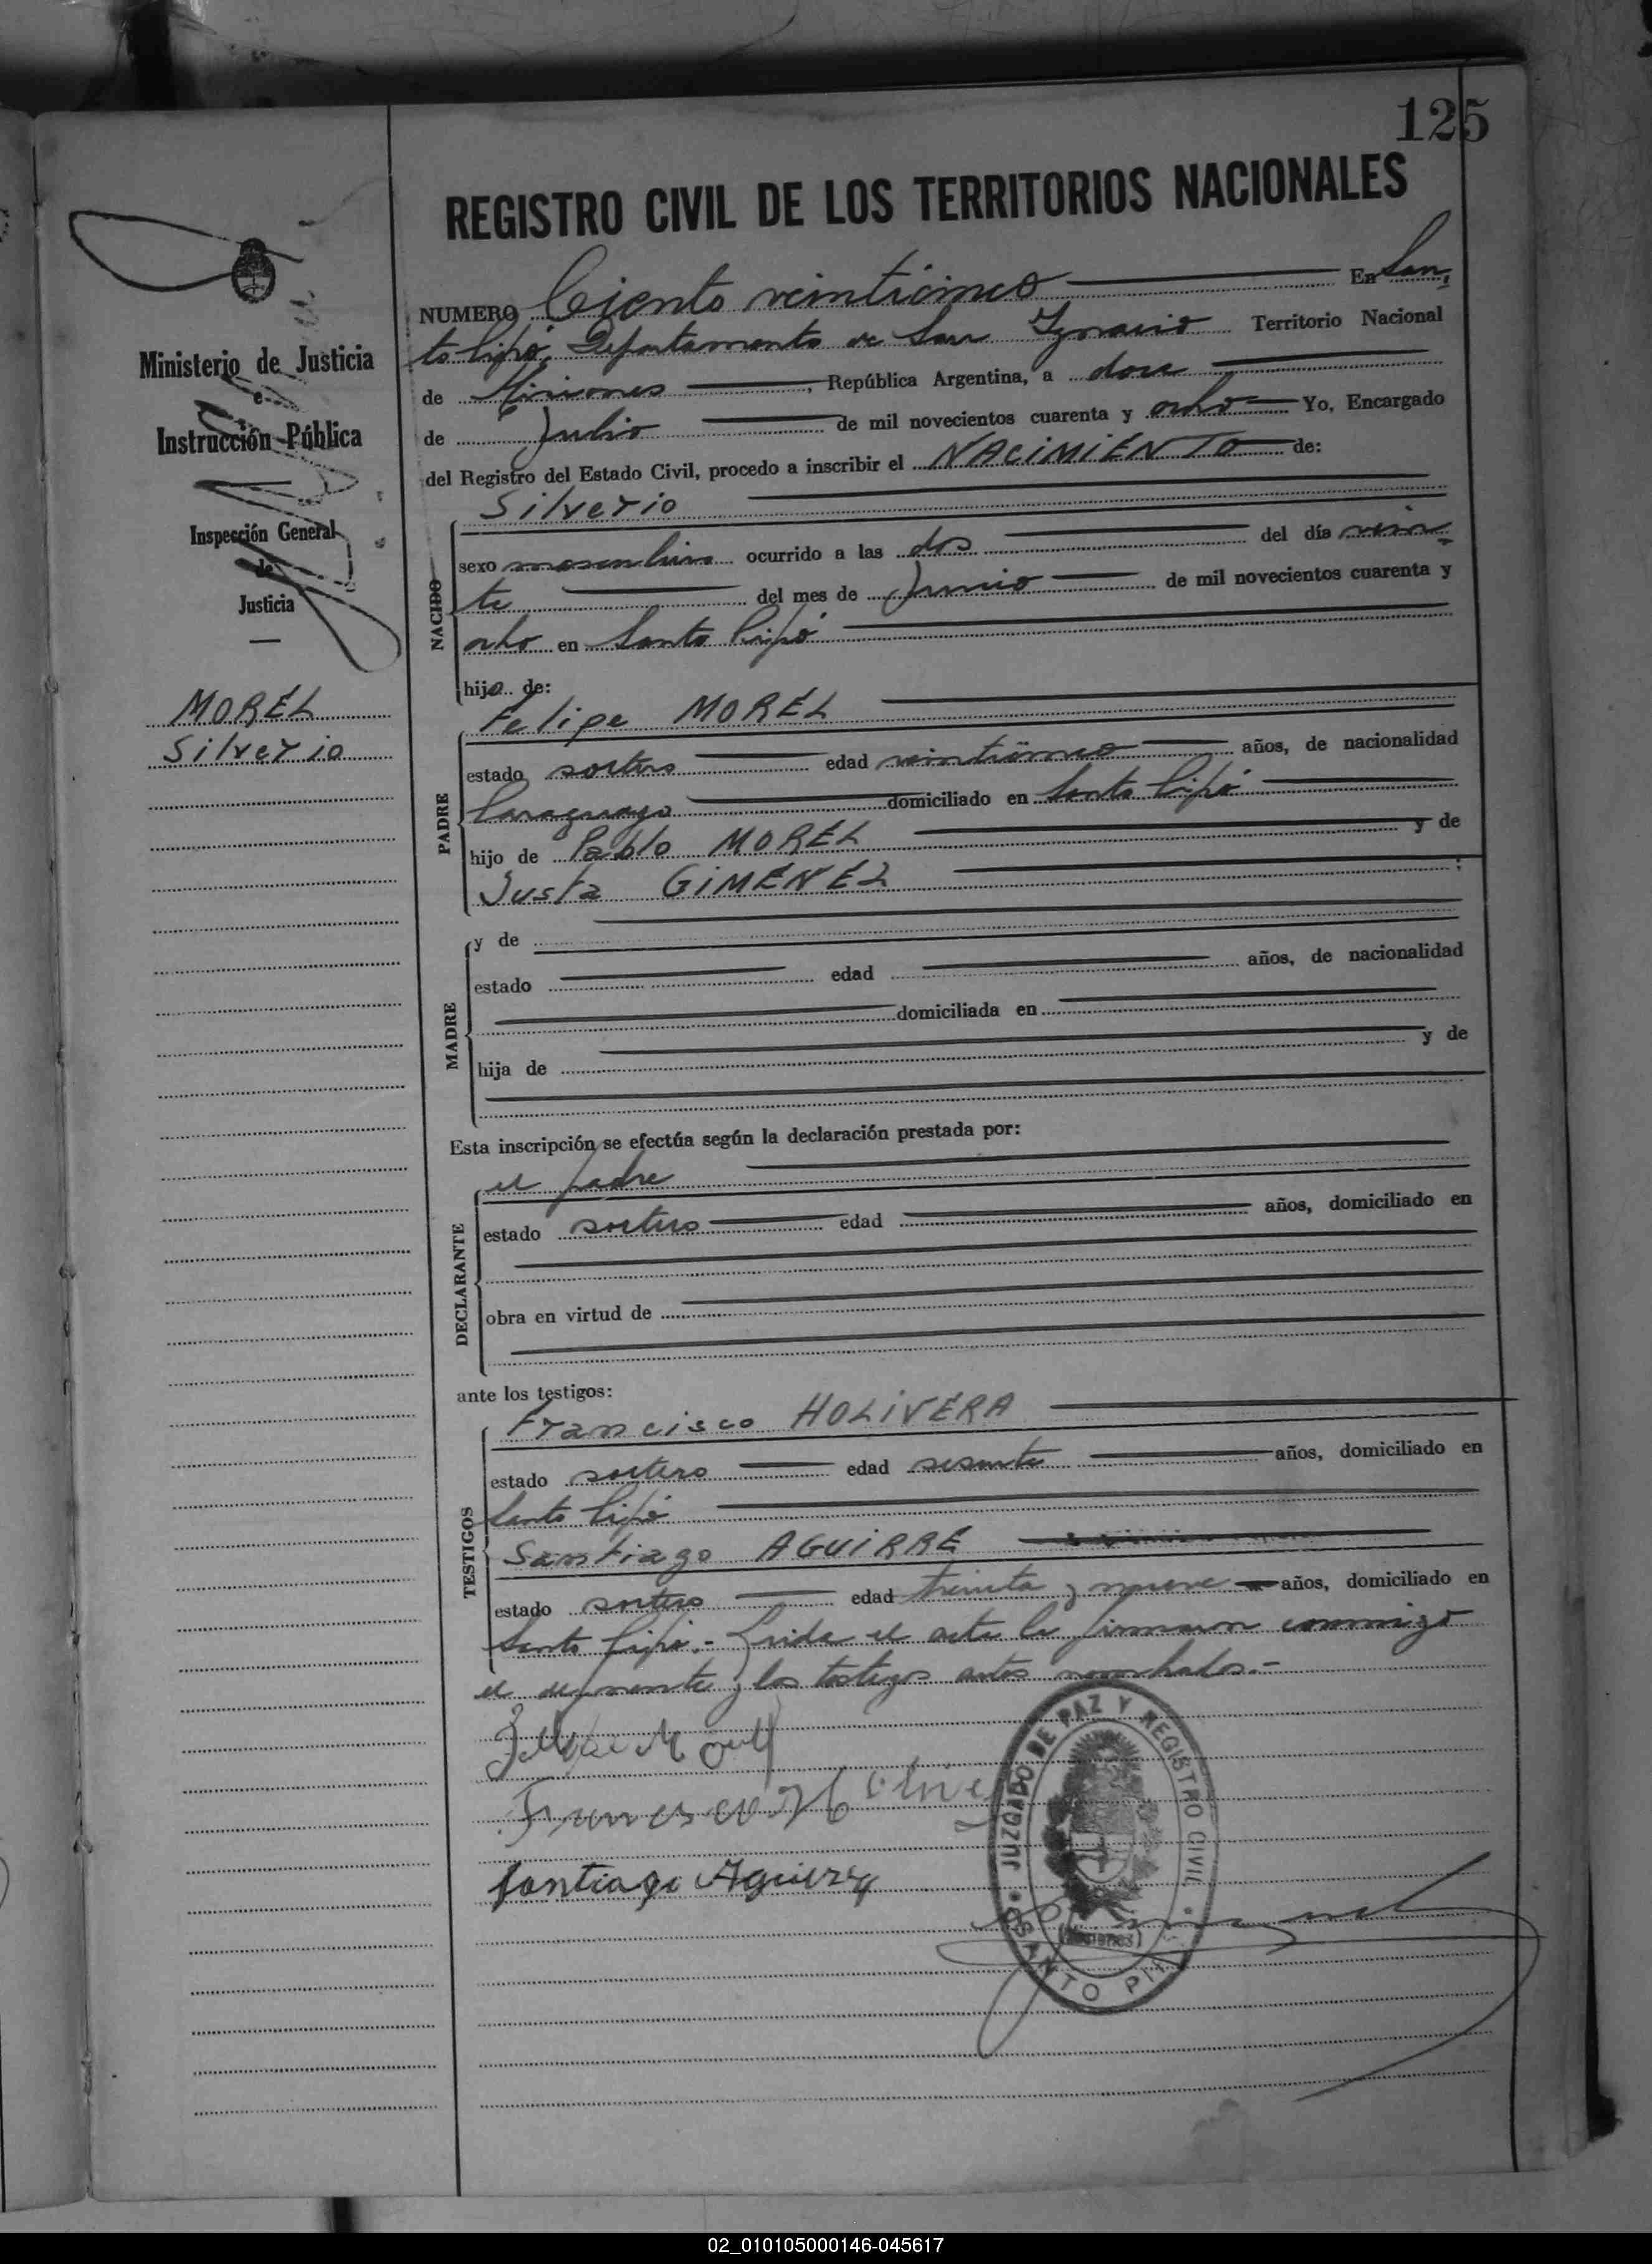 125
REGISTRO CIVIL DE LOS TERRITORIOS NACIONALES
NUMERO Ciento veinticinco En San
to Pipó, Departamento de San Ignacio Territorio Nacional
de Misiones, República Argentina, a doce
de Julio de mil novecientos cuarenta y ocho Yo, Encargado
del Registro del Estado Civil, procedo a inscribir el NACIMIENTO de:
Ministerio de Justicia
e
Instrucción Pública
Inspección General
de
Justicia
MOREL
Silverio
NACIDO
Silverio
sexo masculino ocurrido a las dos del día vein
te del mes de Junio de mil novecientos cuarenta y
ocho en Santo Pipó
hijo de:
PADRE
Felipe MOREL
estado soltero edad veinticinco años, de nacionalidad
Paraguayo domiciliado en Santo Pipó
hijo de Pablo MOREL y de
Justa GIMENEZ ;
MADRE
y de
estado edad años, de nacionalidad
domiciliada en
hija de y de
Esta inscripción se efectúa según la declaración prestada por:
DECLARANTE
el padre
estado soltero edad años, domiciliado en
obra en virtud de
ante los testigos:
TESTIGOS
Francisco HOLIVERA
estado soltero edad sesenta años, domiciliado en
Santo Pipó
Santiago AGUIRRE
estado soltero edad treinta y nueve años, domiciliado en
Santo Pipó.- Leída el acta la firmaron conmigo
el denunciante y los testigos antes nombrados.-
Felipe Morel
Francisco Holive
Santiago Aguirre
JUZGADO DE PAZ Y REGISTRO CIVIL
(Misiones)
SANTO PIPÓ
02_010105000146-045617